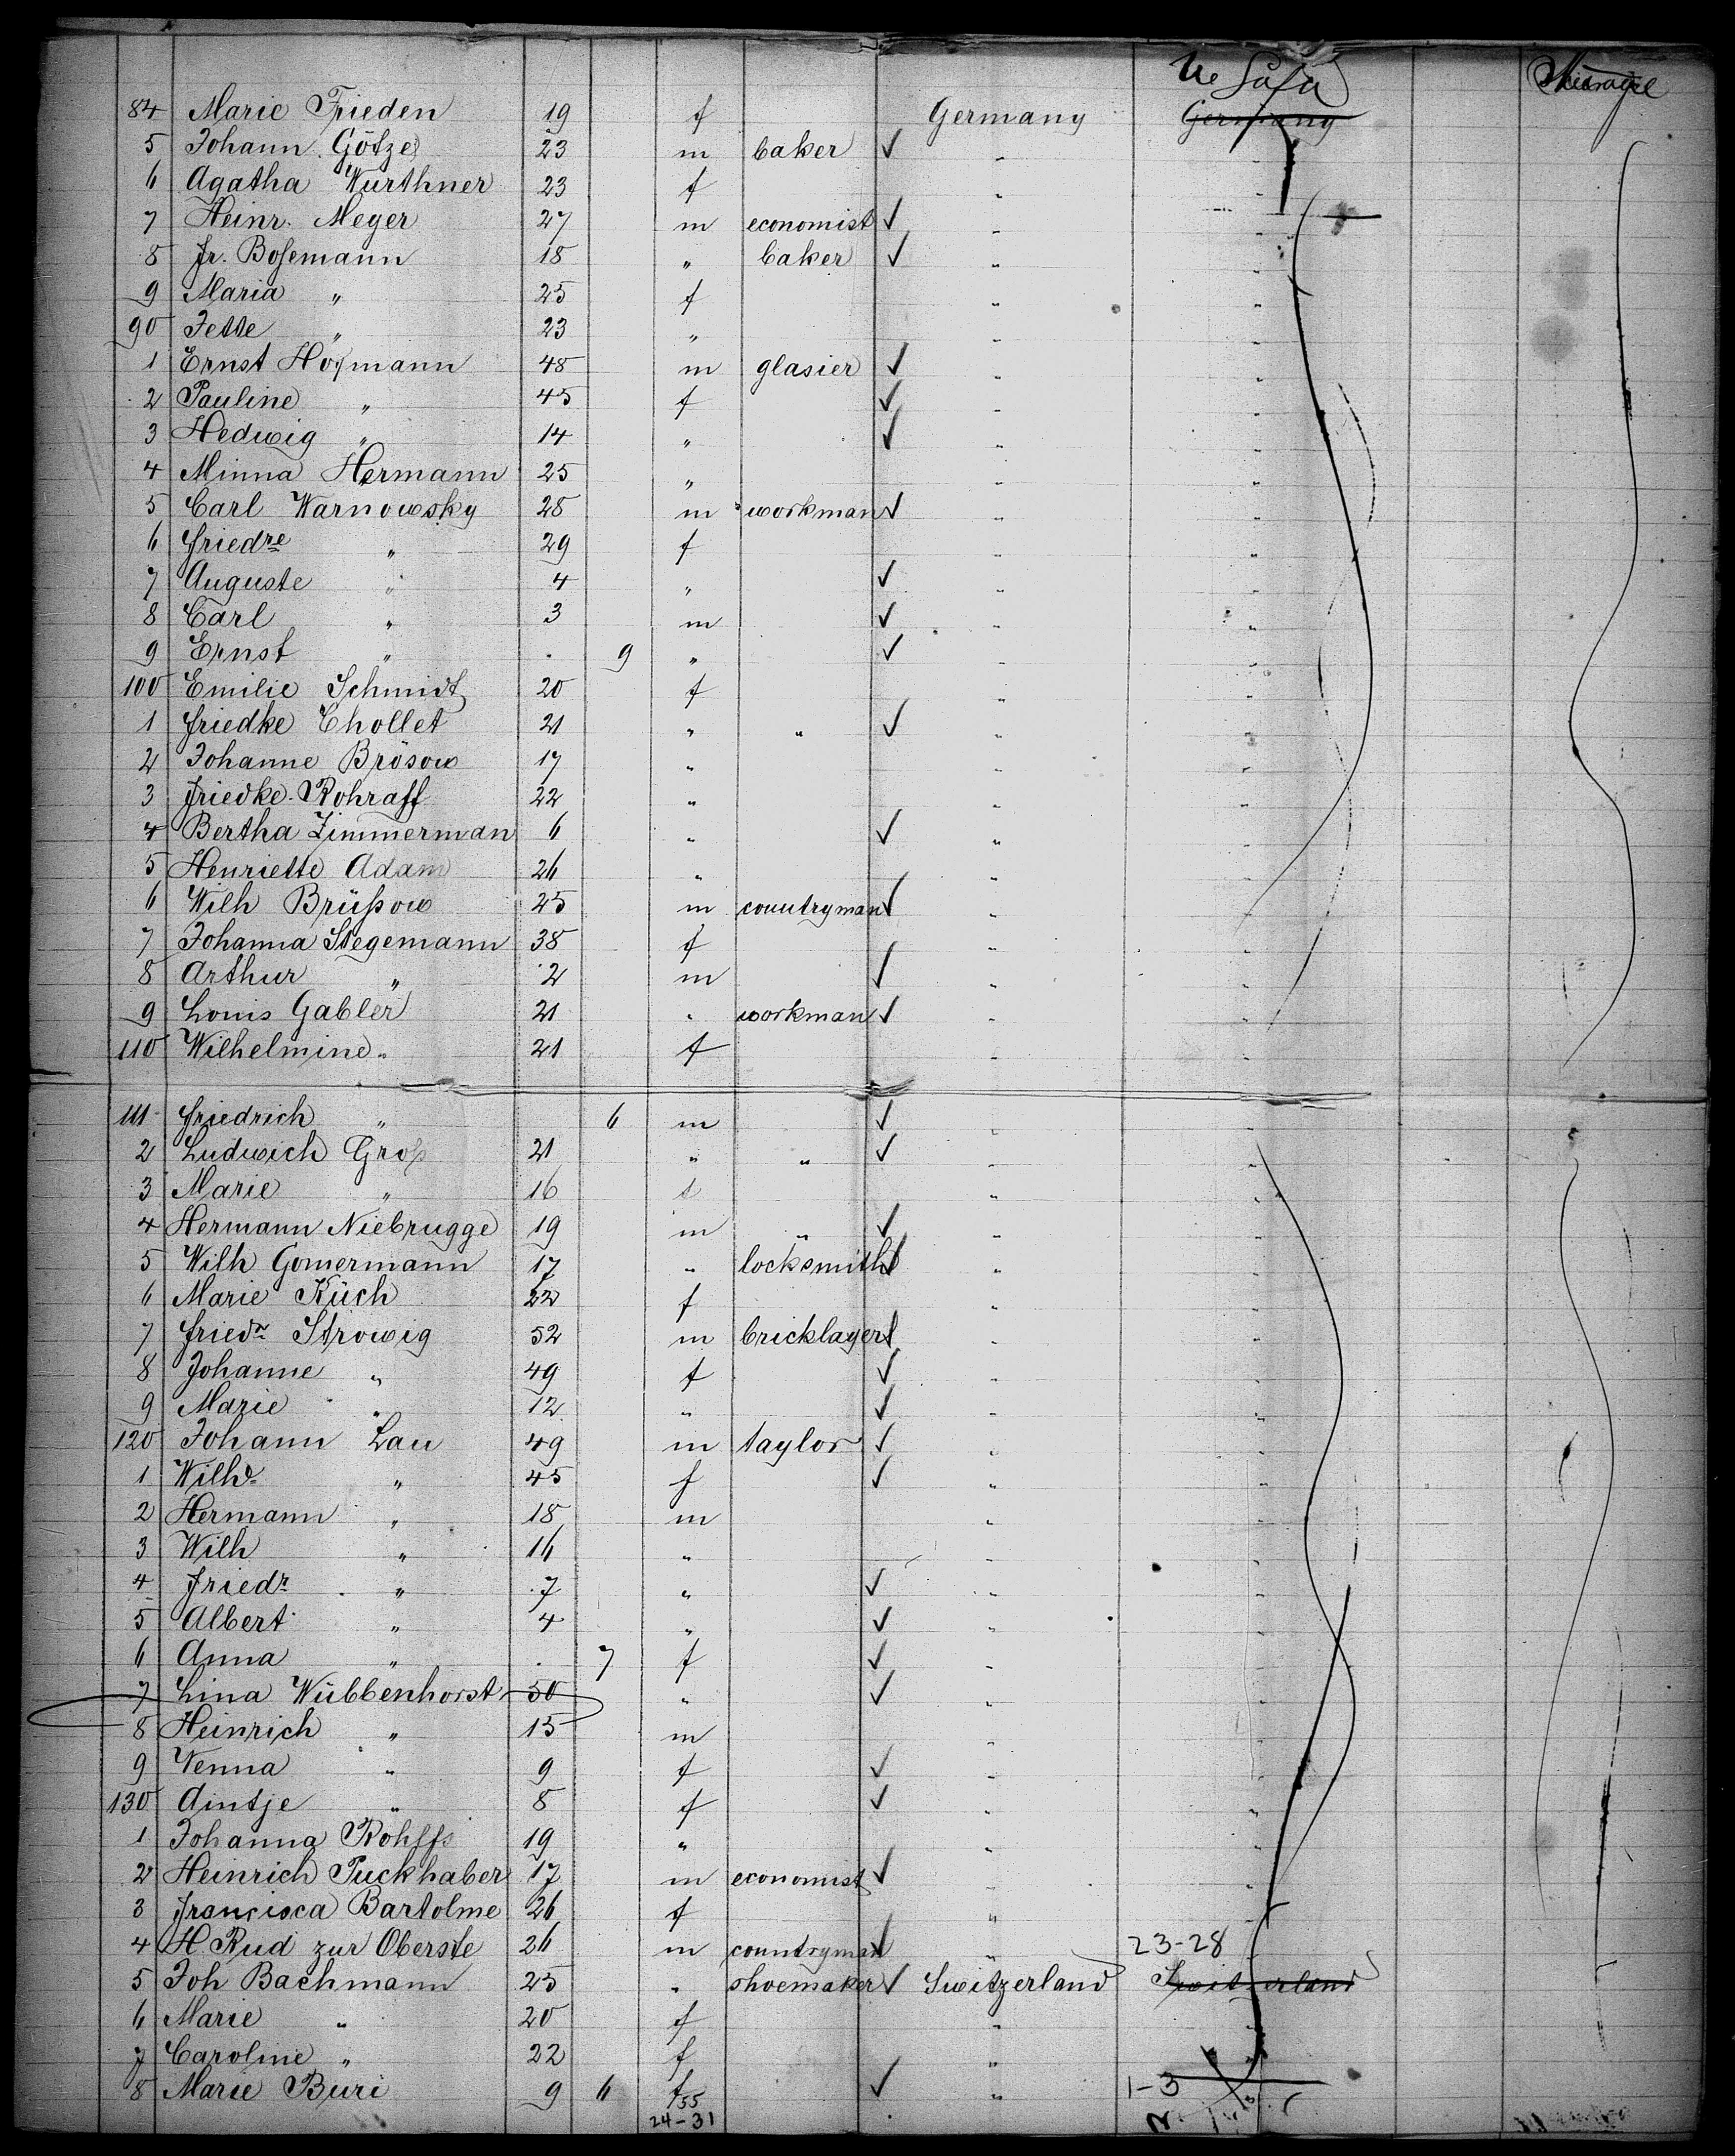 U.S of A
Steerage
84 Marie Frieden 19 f Germany Germany
5 Johann Götze 23 m baker ✓ "
6 Agatha Wurthner 23 f " "
7 Heinr. Meyer 27 m economist ✓ "
8 Fr. Boſemann 18 " baker ✓ " "
9 Maria " 25 f " "
90 Jette " 23 " " "
1 Ernst Hofmann 48 m glasier ✓ " "
2 Pauline " 45 f ✓ " "
3 Hedwig " 14 " ✓ " "
4 Minna Hermann 25 " " "
5 Carl Warnowsky 28 m workman ✓ " "
6 Friedre " 29 f " "
7 Auguste " 4 " ✓ " "
8 Carl " 3 m ✓ " "
9 Ernst " . 9 " ✓ " "
100 Emilie Schmidt 20 f " "
1 Friedke Chollet 21 " " ✓ " "
2 Johanne Brösow 17 " " "
3 Friedke. Rohraff 22 " " "
4 Bertha Zimmerman 6 " ✓ " "
5 Henriette Adam 26 " " "
6 Wilh Brüßow 25 m countryman ✓ " "
7 Johanna Stegemann 38 f " "
8 Arthur " 2 m ✓ " "
9 Louis Gabler 21 " workman ✓ " "
110 Wilhelmine " 21 f " "
111 Friedrich " 6 m ✓ " "
2 Ludwich Groß 21 " " ✓ " "
3 Marie " 16 f " "
4 Hermann Niebrugge 19 m " ✓ " "
5 Wilh Gomermann 17 " locksmith ✓ " "
6 Marie Küch 22 f " "
7 Friedr Strowig 52 m bricklayer ✓ " "
8 Johanne " 49 f ✓ " "
9 Marie " 12 " ✓ " "
120 Johann Lau 49 m taylor ✓ " "
1 Wilhe " 45 f ✓ " "
2 Hermann " 18 m " "
3 Wilh " 16 " " "
4 Friedr " 7 " ✓ " "
5 Albert " 4 " ✓ " "
6 Anna " . 7 f ✓ " "
7 Lina Wübbenhorst 50 " ✓ " "
8 Heinrich " 15 m " "
9 Venna " 9 f ✓ " "
130 Aintje " 8 f ✓ " "
1 Johanna Rohlffs 19 " " "
2 Heinrich Puckhaber 17 m economist ✓ " "
3 Francisca Bartolme 26 f " "
4 H. Rud zur Oberste 26 m countryman ✓ " 23-28
5 Joh Bachmann 25 " shoemaker ✓ Switzerland Switzerland
6 Marie " 20 f " "
7 Caroline " 22 f " "
8 Marie Buri 9 6 f ✓ " 1-3
55
24-31